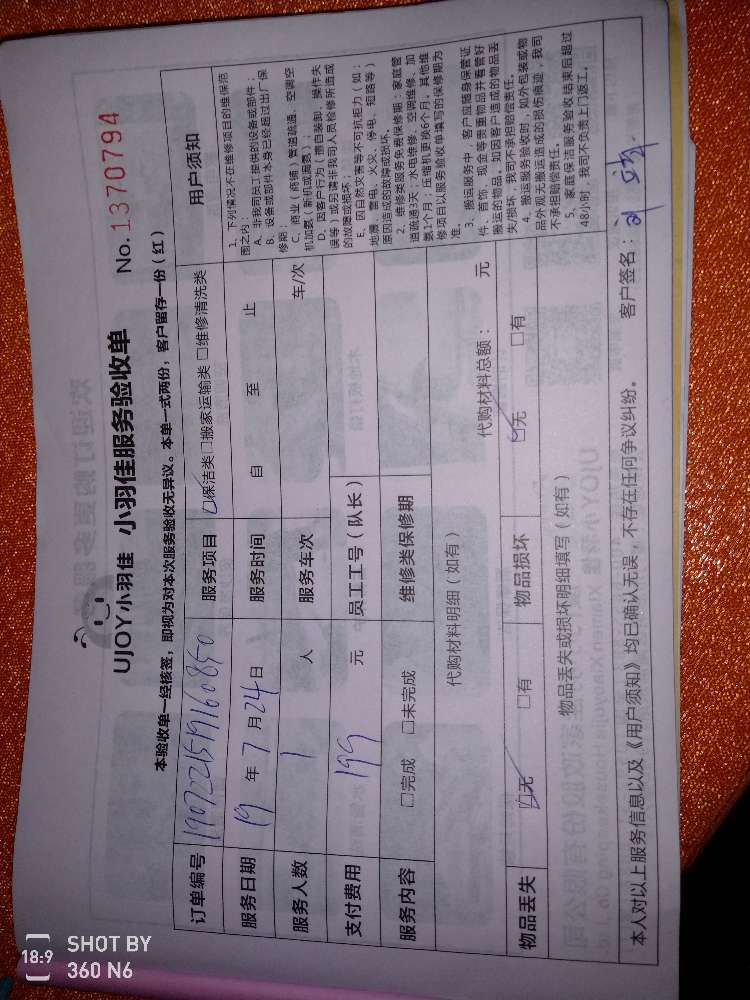 UJOY小羽佳 小羽佳服务验收单
No. 1370794
本验收单一经核签，即视为对本次服务验收无异议。本单一式两份，客户留存一份（红）
订单编号 190722159160850 服务项目 ☑保洁类□搬家运输类□维修清洗类 用户须知
服务日期 19 年 7 月 24 日 服务时间 自 至 止
服务人数 1 人 服务车次 车/次
支付费用 199 元 员工工号（队长）
服务内容 □完成 □未完成 维修类保修期
代购材料明细（如有） 代购材料总额： 元
物品丢失 ☑无 □有 物品损坏 ☑无 □有
物品丢失或损坏明细填写（如有）
1、下列情况不在维修项目的维保范
围之内：
A、非我司员工提供的设备或部件；
B、设备或部件本身已经超过出厂保
修期；
C、商业（商铺）管道疏通、空调空
机加氨（新机或漏氨）；
D、因客户行为（擅自装卸、操作失
误等）或另请非我司人员检修所造成
的故障或损坏；
E、因自然灾害等不可抗拒力（如：
地震、雷电、火灾、停电、短路等）
原因造成的故障或损坏。
2、维修类服务免费保修期：家庭管
道疏通3天；水电维修、空调维修、加
氨1个月；压缩机更换6个月；其他维
修项目以服务验收单填写的保修期为
准。
3、搬运服务中，客户应随身保管证
件、首饰、现金等贵重物品并看管好
搬运的物品。如因客户造成的物品丢
失/损坏，我司不承担赔偿责任。
4、搬运服务验收到，如外包装或物
品外观无搬运造成的损伤痕迹，我司
不承担赔偿责任。
5、家庭保洁服务验收结束后超过
48小时，我司不负责上门返工。
本人对以上服务信息以及《用户须知》均已确认无误，不存在任何争议纠纷。 客户签名：
18:9
SHOT BY
360 N6